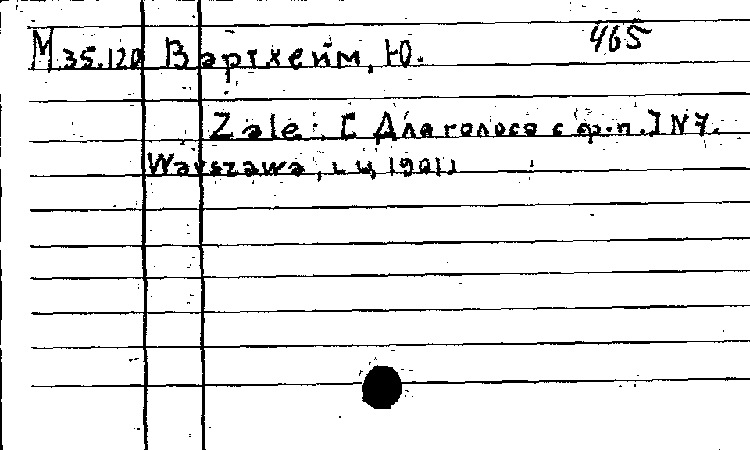 465
М 35.120 Вэртхейм, Ю.
Zale. [Для голоса с ф.п.] N 7.
Warszawa, ц. ц. 1901